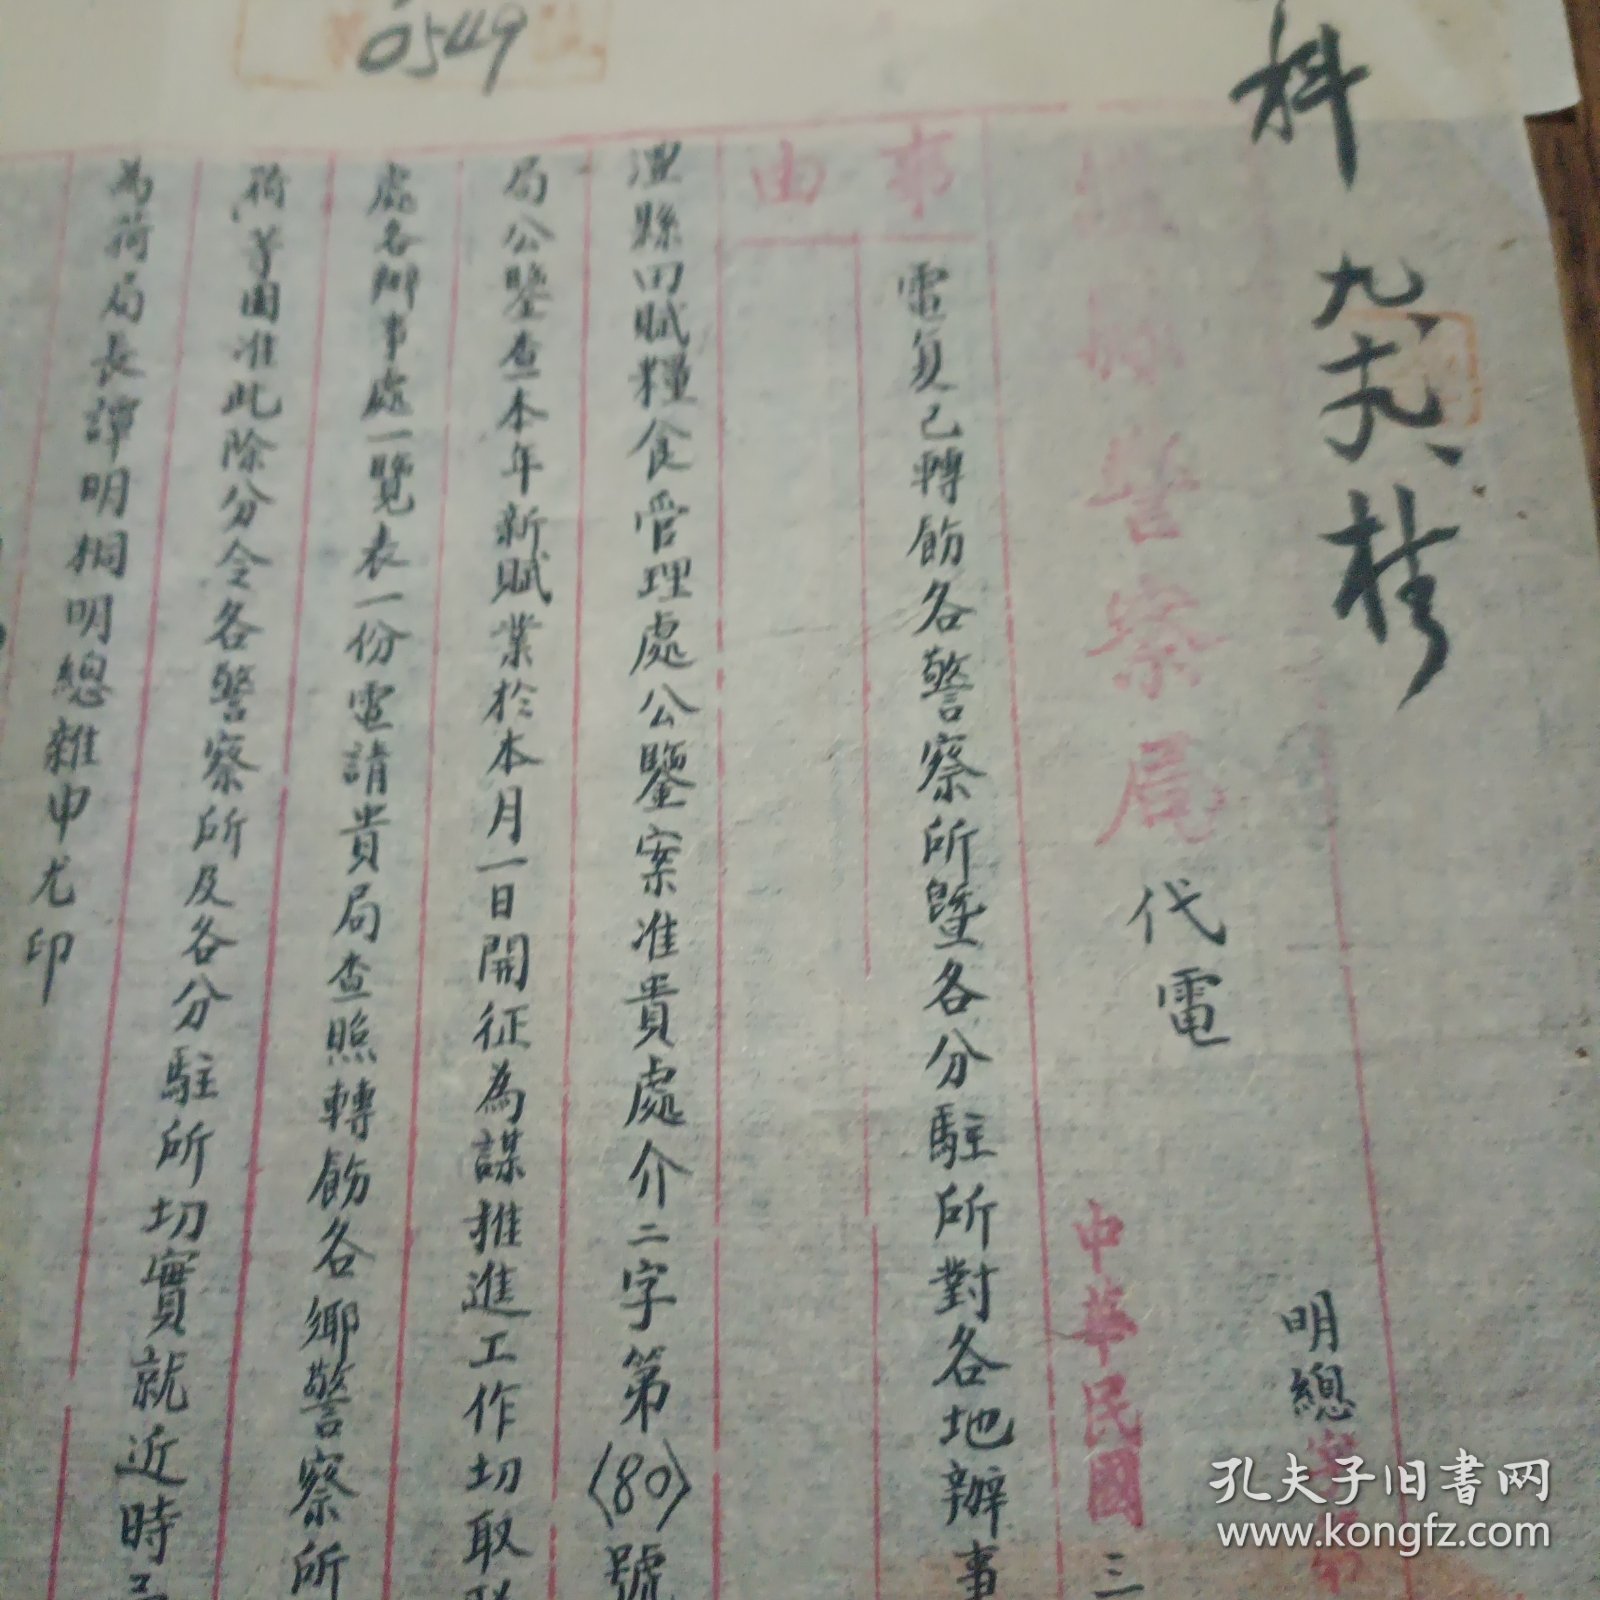 0549
科
九、十八、
明總字第
縣警察局代電
中華民國三
事由
電复已轉飭各警察所暨各分駐所對各地辦事
澧縣田賦糧食管理處公鑒案准貴處介二字第(80)號
局公鑒查本年新賦業於本月一日開征為謀推進工作切取聯
處各鄉事處一覽表一份電請貴局查照轉飭各鄉警察所
荷等由准此除分令各警察所及各分駐所切實就近時
為荷局長譚明桐明總雜申尤印
孔夫子旧书网
www.kongfz.com